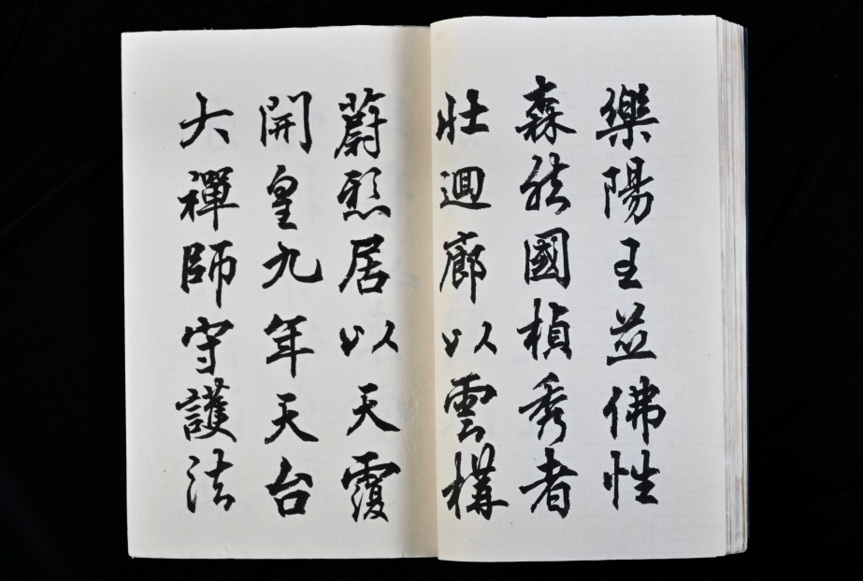 樂陽王並佛性
森然國楨秀者
壯迴廊以雲構
蔚居以天覆
開皇九年天台
大禪師守護法